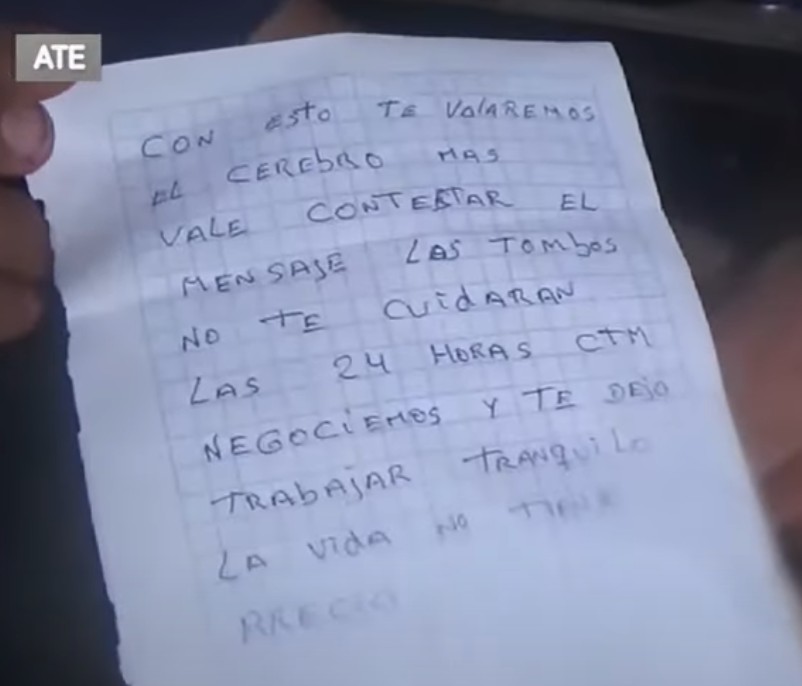 ATE
CON ESTO TE VOlAREMOS
EL CEREbRO MAS
VALE CONTESTAR EL
MENSAJE LAS TOMbOS
NO TE CUIdARAN
LAS 24 HORAS CTM
NEGOCIEMOS Y TE DEJO
TRAbAJAR TRANQUILO
LA VIdA NO TIENE
PRECIO